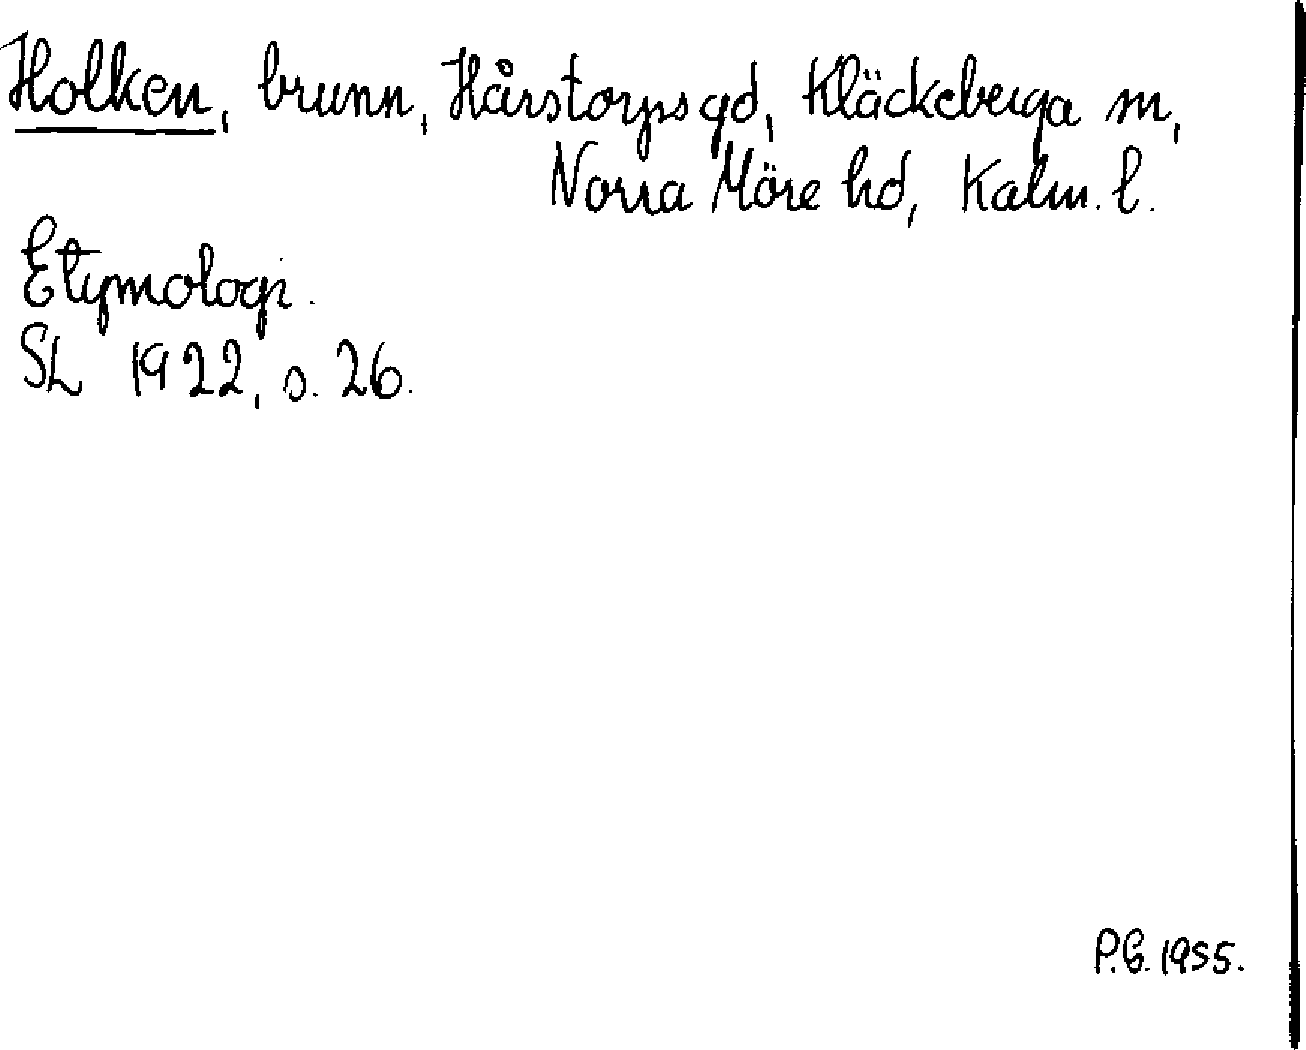 Holken, brunn, Hårstorps gd, Kläckeberga sn,
Norra Möre hd, Kalm. l.
Etymologi.
SL 1922, s. 26.
P.G. 1955.